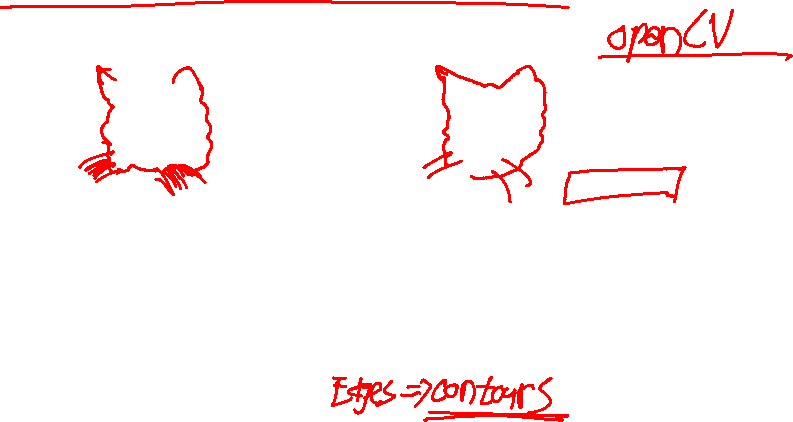 openCV
Edges => contours